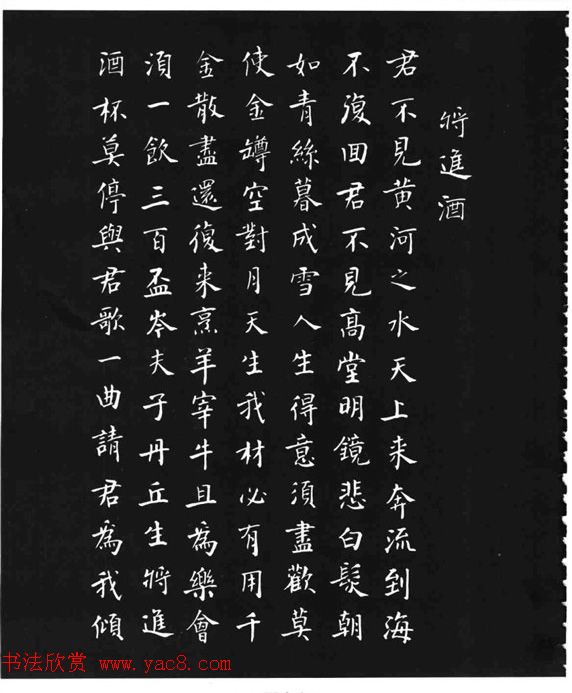 將進酒
君不見黄河之水天上来奔流到海
不復回君不見高堂明鏡悲白髮朝
如青絲暮成雪人生得意須盡歡莫
使金罇空對月天生我材必有用千
金散盡還復来烹羊宰牛且為樂會
須一飲三百盃岑夫子丹丘生將進
酒杯莫停與君歌一曲請君為我傾
书法欣赏 www.yac8.com